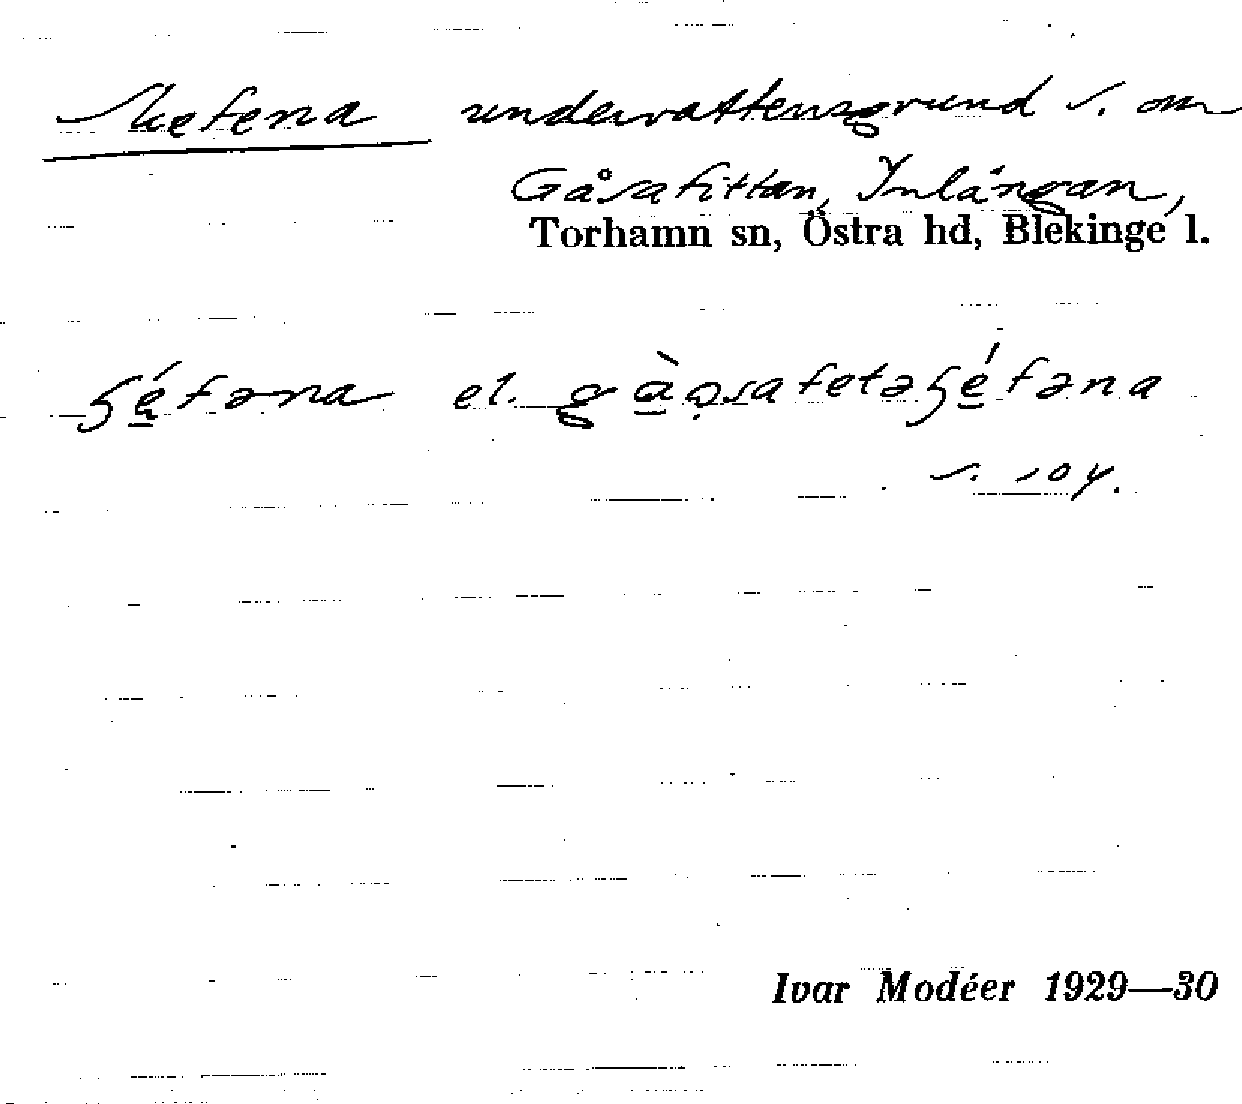 Skefena undervattensgrund s. om
Gåsafittan, Inlängan,
Torhamn sn, Östra hd, Blekinge l.
el.
s. 104.
Ivar Modéer 1929—30